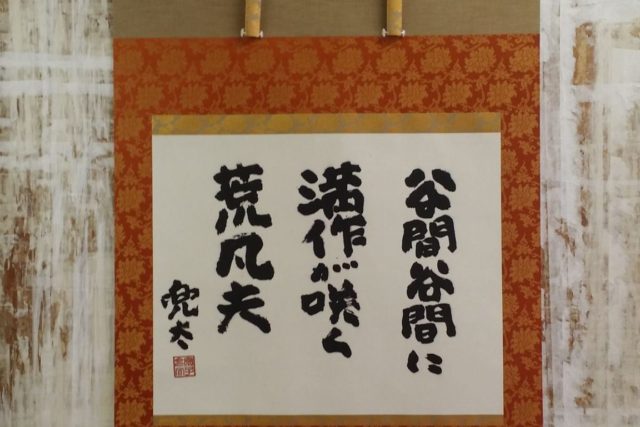 谷間谷間に
満作が咲く
荒凡夫
兜太